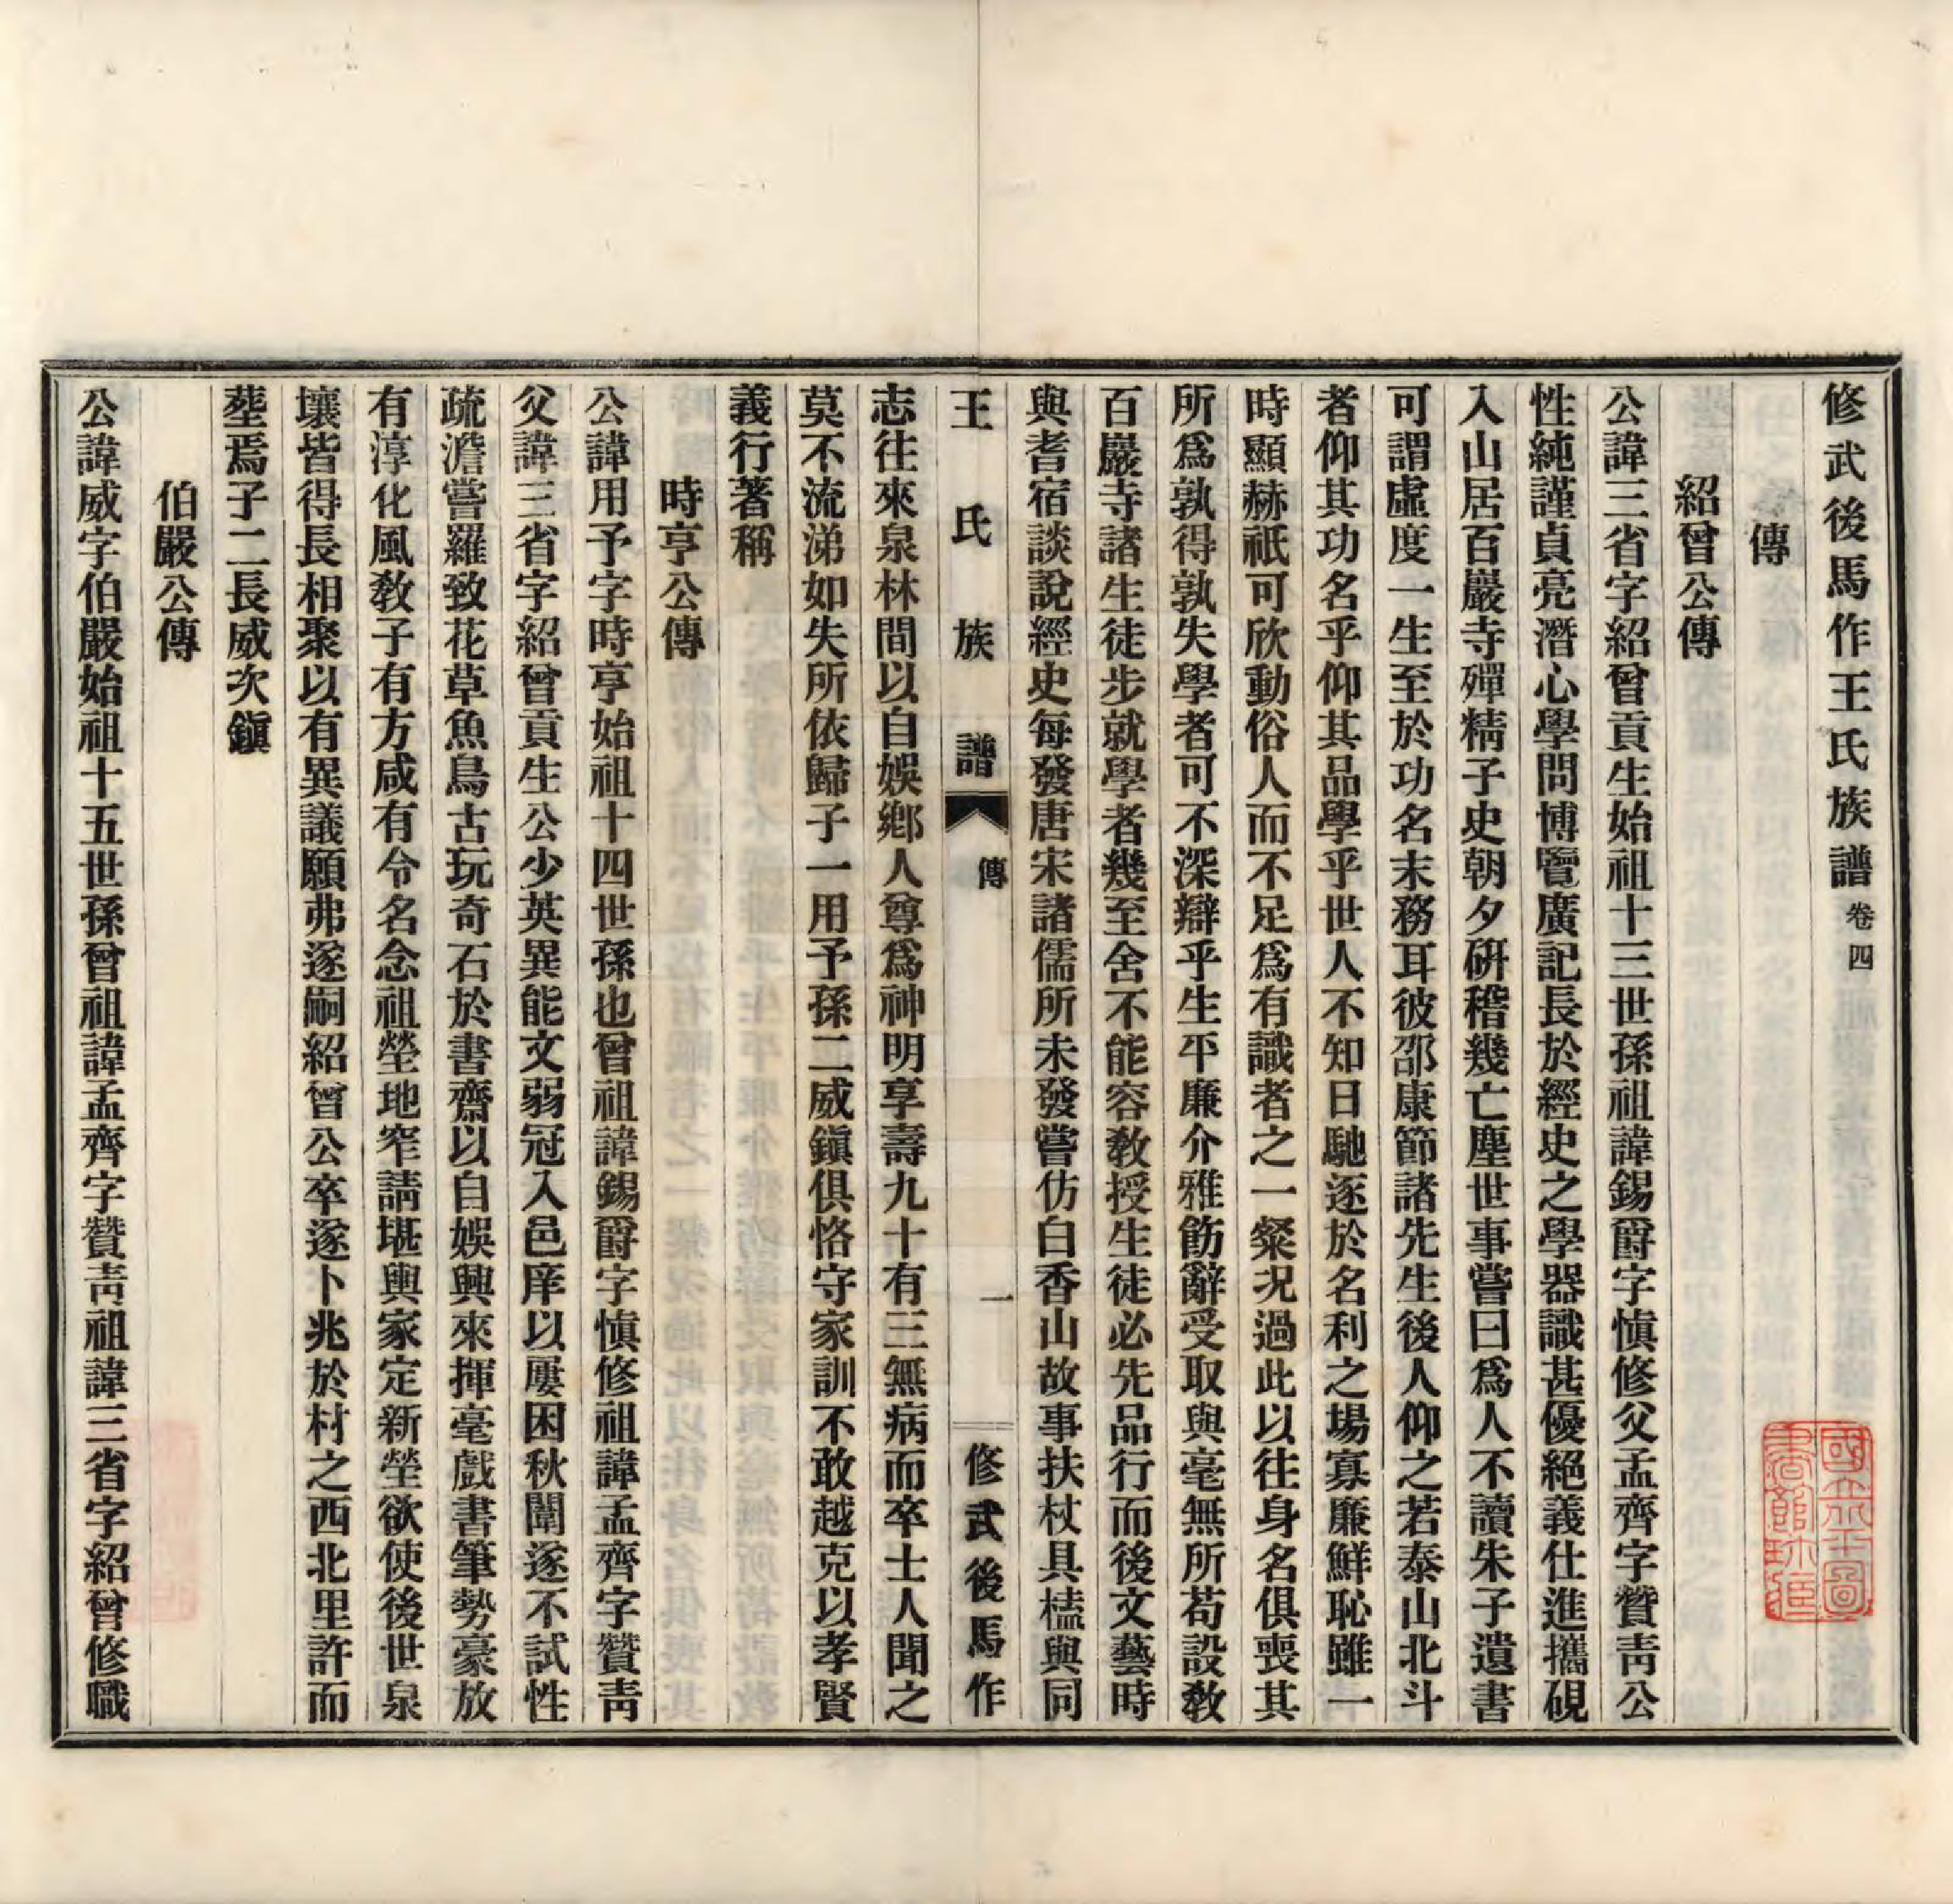 修武後馬作王氏族譜卷四
傳
紹曾公傳
公諱三省字紹曾貢生始祖十三世孫祖諱錫爵字愼修父孟齊字贊靑公
性純謹貞亮潛心學問博覽廣記長於經史之學器識甚優絕義仕進攜硯
入山居百巖寺殫精子史朝夕硏稽幾亡塵世事嘗曰爲人不讀朱子遺書
可謂虛度一生至於功名末務耳彼邵康節諸先生後人仰之若泰山北斗
者仰其功名乎仰其品學乎世人不知日馳逐於名利之場寡廉鮮恥雖一
時顯赫祇可欣動俗人而不足爲有識者之一粲况過此以往身名俱喪其
所爲孰得孰失學者可不深辯乎生平廉介雅飭辭受取與毫無所苟設敎
百巖寺諸生徒步就學者幾至舍不能容敎授生徒必先品行而後文藝時
與耆宿談說經史每發唐宋諸儒所未發嘗仿白香山故事扶杖具榼與同
王氏族譜 傳 一 修武後馬作
志往來泉林間以自娛鄕人尊爲神明享壽九十有三無病而卒士人聞之
莫不流涕如失所依歸子一用予孫二威鎭俱恪守家訓不敢越克以孝賢
義行著稱
時亨公傳
公諱用予字時亨始祖十四世孫也曾祖諱錫爵字愼修祖諱孟齊字贊靑
父諱三省字紹曾貢生公少英異能文弱冠入邑庠以屢困秋闈遂不試性
疏澹嘗羅致花草魚鳥古玩奇石於書齋以自娛興來揮毫戲書筆勢豪放
有淳化風敎子有方咸有令名念祖塋地窄請堪輿家定新塋欲使後世泉
壤皆得長相聚以有異議願弗遂嗣紹曾公卒遂卜兆於村之西北里許而
塟焉子二長威次鎭
伯嚴公傳
公諱威字伯嚴始祖十五世孫曾祖諱孟齊字贊靑祖諱三省字紹曾修職
國立北平圖書館珍藏